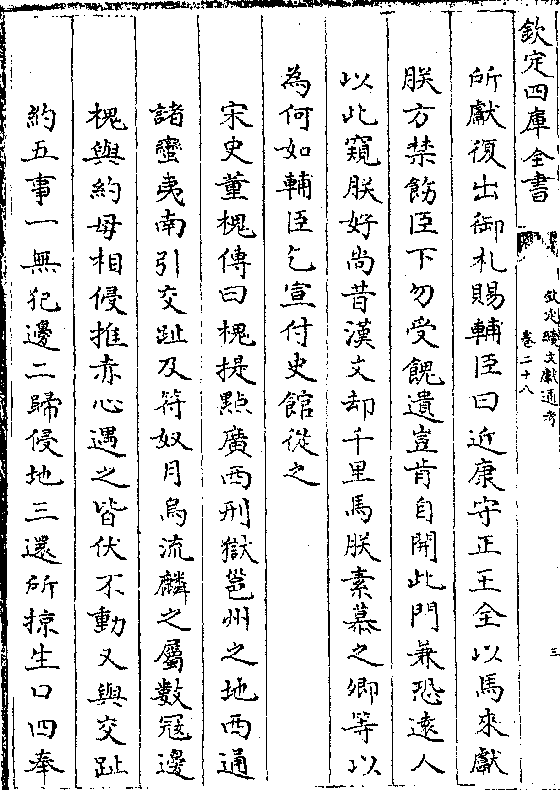 欽定四庫全書
欽定續文獻通考
卷二十八
三
所獻復出御札賜輔臣曰近康守正王全以馬來獻
朕方禁飭臣下勿受餽遺豈肯自開此門兼恐遠人
以此窺朕好尚昔漢文却千里馬朕素慕之卿等以
為何如輔臣乞宣付史館從之
宋史董槐傳曰槐提點廣西刑獄邕州之地西通
諸蠻夷南引交趾及符奴月烏流麟之屬數冦邊
槐與約毋相侵推赤心遇之皆伏不動又與交趾
約五事一無犯邊二歸侵地三還所掠生口四奉